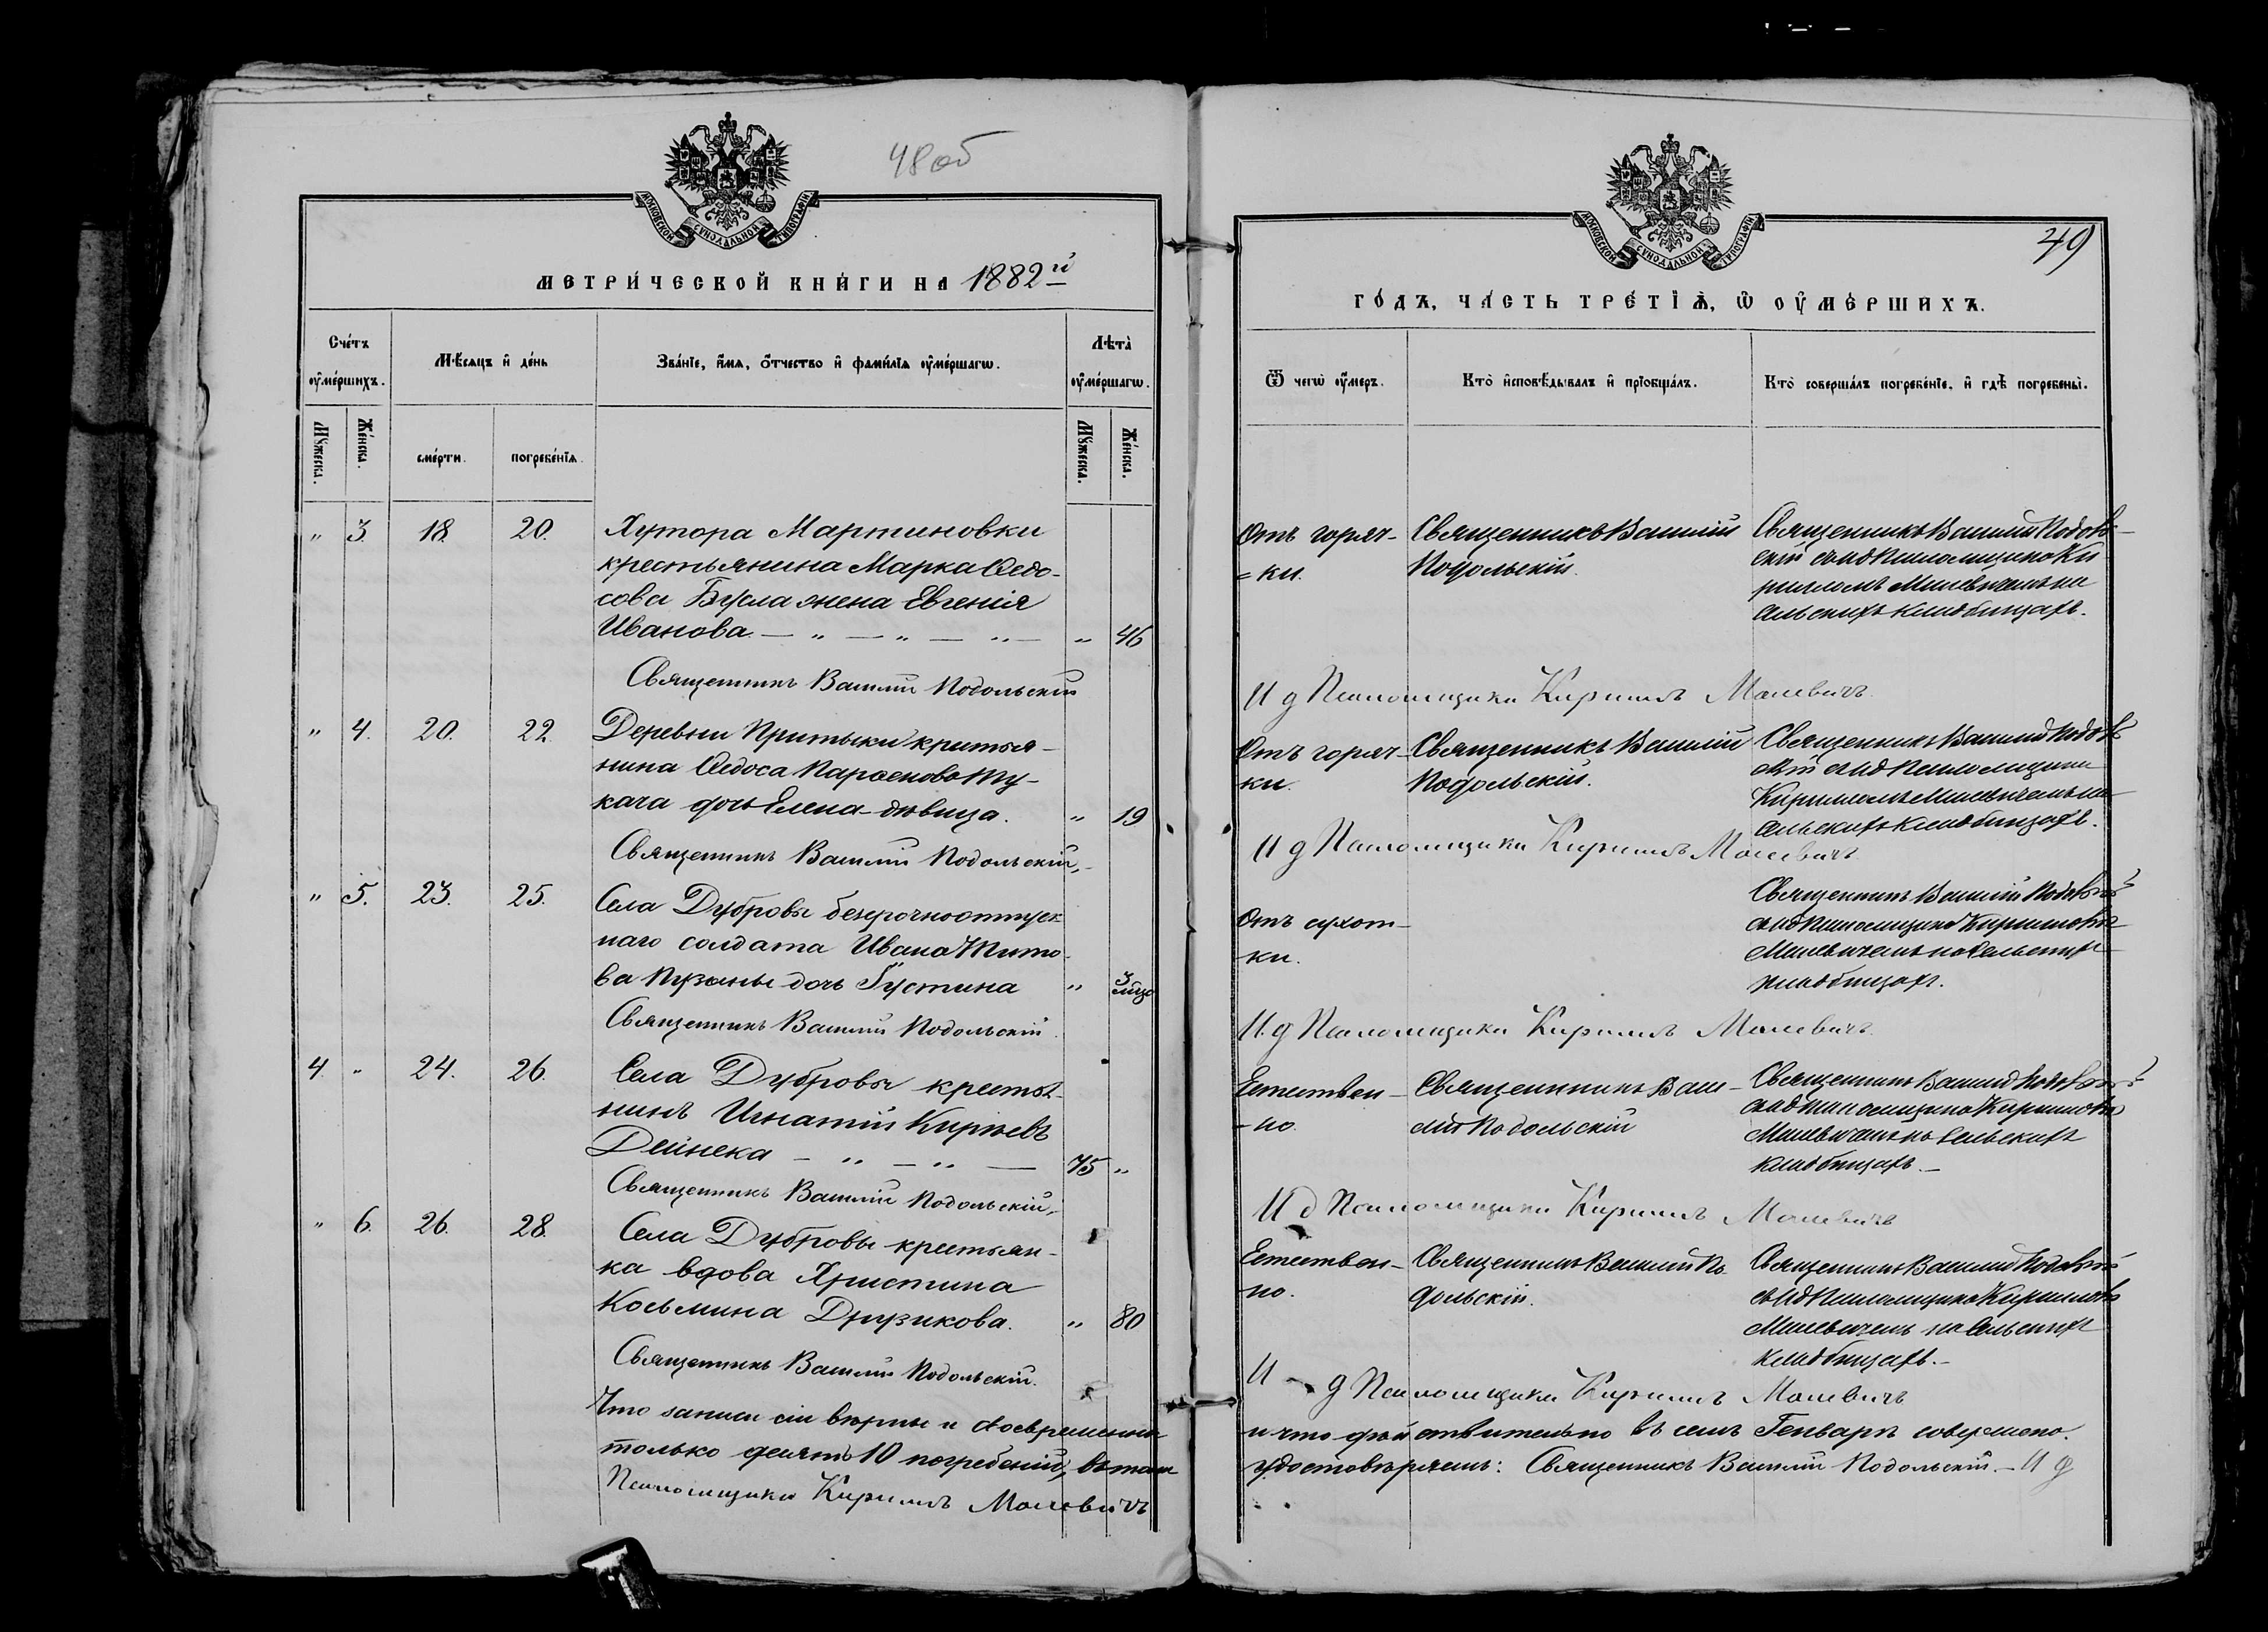 48 об
МОСКОВСКОЙ СѴНОДАЛЬНОЙ ТИПОГРАФІИ
МЕТРИ́ЧЕСКОЙ КНИ́ГИ НА 1882й
Сче́тъ ᲂу҆ме́ршихъ.
Мѣ́сяцъ и҆ де́нь
Зва́нїе, и҆́мя, ѻ҆́тчество и҆ фами́лїя ᲂу҆ме́ршагѡ.
Лѣта̀ ᲂу҆ме́ршагѡ.
Мꙋ́жеска.
Же́нска.
сме́рти.
погребе́нїя.
Мꙋ́жеска.
Же́нска.
„ 3. 18. 20. Хутора Мартиновки
крестьянина Марка Ѳедо-
сова Бурла жена Евгенія
Иванова — „ — „ — „ — „ 46
Священникъ Василій Подольскій
„ 4. 20. 22. Деревни Притыки крестья-
нина Ѳедоса Парѳенова Ту-
кача дочь Елена-дѣвица. „ 19
Священникъ Василій Подольскій
„ 5. 23. 25. Села Дубровы безсрочноотпуск
наго солдата Ивана Тито-
ва Пузаны дочь Густина „ 3 мѣс
Священникъ Василій Подольскій.
4. „ 24. 26. Села Дубровы крестья-
нинъ Игнатій Кирѣевъ
Дейнека — „ — „ — 75 „
Священникъ Василій Подольскій
„ 6. 26. 28. Села Дубровы крестьян-
ка вдова Христина
Косьмина Друзикова. „ 80
Священникъ Василій Подольскій.
Что записи сіи вѣрны и своевременны
только десять 10 погребеній,
Псаломщика Кириллъ Малевичъ
49
МОСКОВСКОЙ СѴНОДАЛЬНОЙ ТИПОГРАФІИ
ГО́ДЪ, ЧА́СТЬ ТРЕ́ТЇѦ, Ѡ҆ ОУ҆МЕ́РШИХЪ.
Ѿ чегѡ̀ ᲂу҆́меръ.
Кто̀ и҆сповѣ́дывалъ и҆ прїобща́лъ.
Кто̀ соверша́лъ погребе́нїе, и҆ гдѣ̀ погребены̀.
Отъ горяч- Священникъ Василій Священникъ Василій Подоль-
=ки. Подольскій. скій съ и д псаломщика Ки
рилломъ Малевичемъ на
сельскихъ кладбищахъ.
И д Псаломщика Кириллъ Малевичъ
Отъ горяч- Священникъ Василій Священникъ Василій Подоль
ки. Подольскій. скій съ и д псаломщика
Кирилломъ Малевичемъ на
сельскихъ кладбищахъ.
И д Псаломщика Кириллъ Малевичъ
Священникъ Василій Подольскій
Отъ сухот- съ и д псаломщика Кирилломъ
ки. Малевичемъ на сельскихъ
кладбищахъ.
И. д Псаломщика Кириллъ Малевичъ
Естествен- Священникъ Васи- Священникъ Василій Подольскій
-но. лій Подольскій съ и д псаломщика Кирилломъ
Малевичемъ на сельскихъ
кладбищахъ.—
И д Псаломщика Кириллъ Малевичъ
Естествен- Священникъ Василій По- Священникъ Василій Подольскій
но. дольскій. съ и д псаломщика Кирилломъ
Малевичемъ на сельскихъ
кладбищахъ.—
И д Псаломщика Кириллъ Малевичъ
и что дѣйствительно въ семъ Генварѣ совершено.
удостовѣряемъ: Священникъ Василій Подольскій.— И д